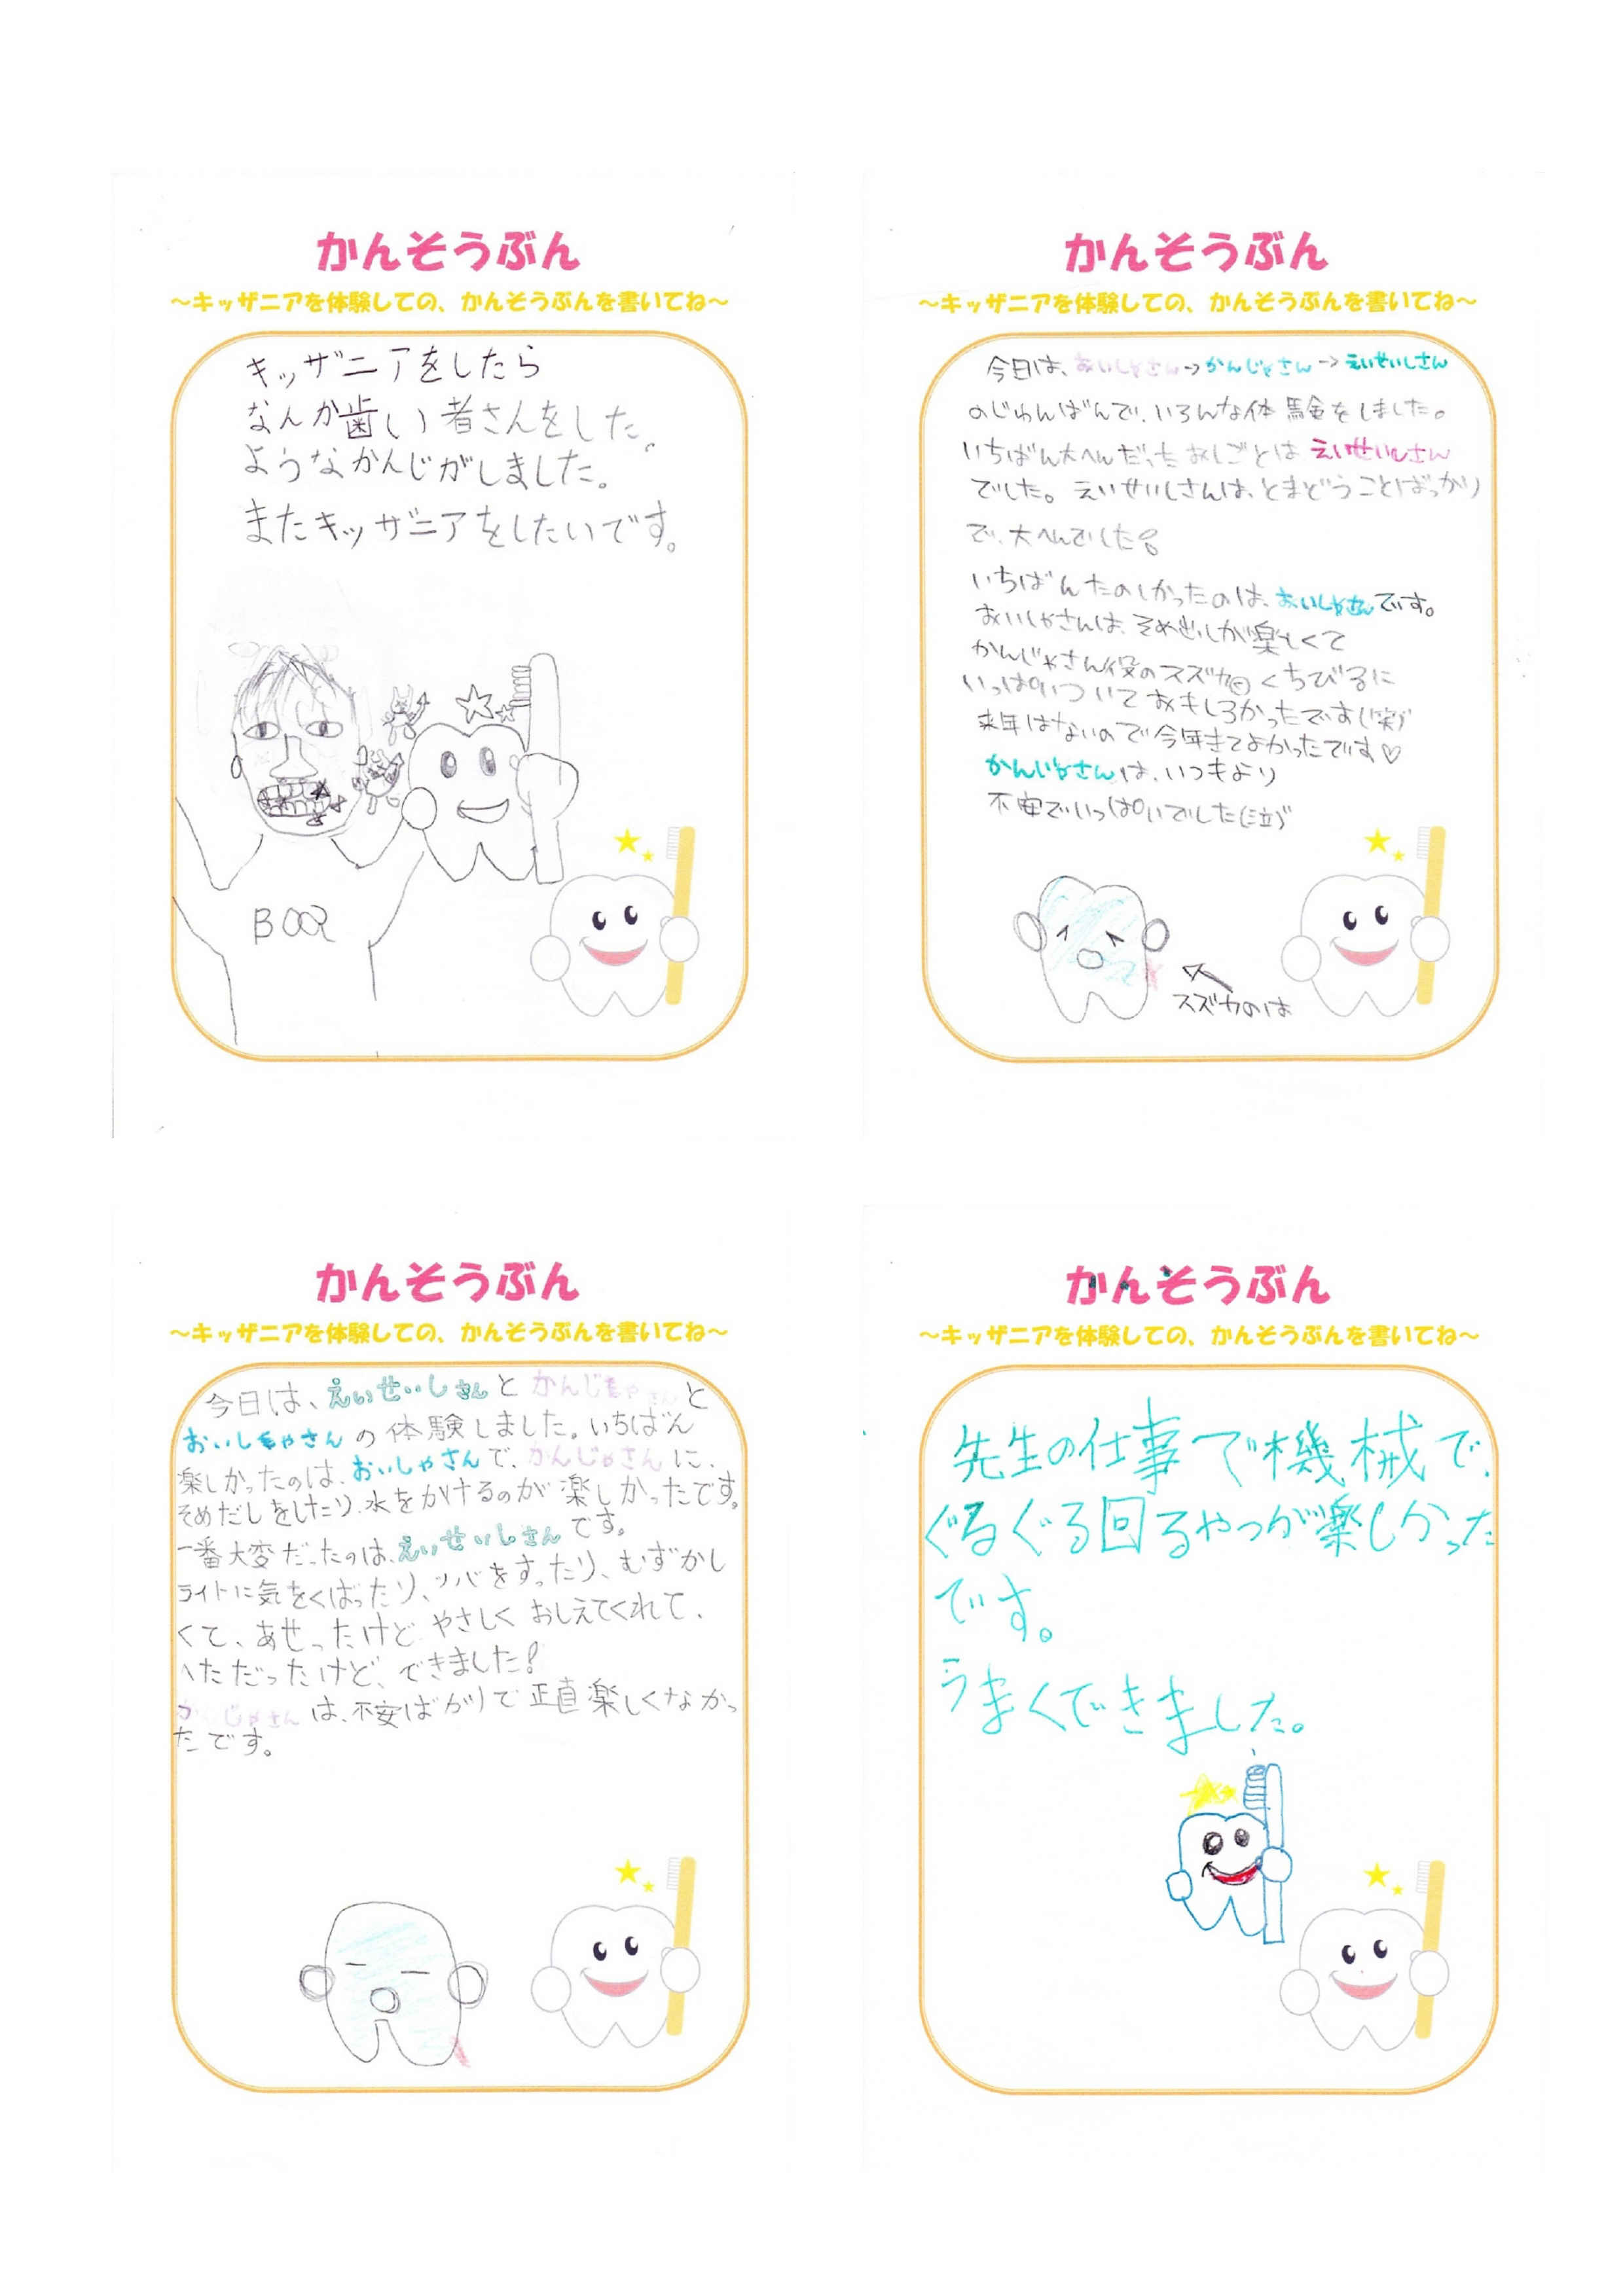 かんそうぶん
～キッザニアを体験しての、かんそうぶんを書いてね～
キッザニアをしたら
なんか歯い者さんをした
ようなかんじがしました。
またキッザニアをしたいです。
かんそうぶん
～キッザニアを体験しての、かんそうぶんを書いてね～
今日は、おいしゃさん→かんじゃさん→えいせいしさん
のじゅんばんで、いろんな体験をしました。
いちばん大へんだったおしごとは えいせいしさん
でした。えいせいしさんは、とまどうことばっかり
で、大へんでした
いちばんたのしかったのは、おいしゃさんです。
おいしゃさんは、そめ出しが楽しくて
かんじゃさん役のスズカの くちびるに
いっぱいついておもしろかったです(笑)
来年はないので今年きてよかったです♡
かんじゃさんは、いつもより
不安でいっぱいでした(泣)
スズカのは
かんそうぶん
～キッザニアを体験しての、かんそうぶんを書いてね～
今日は、えいせいしさんと かんじゃさんと
おいしゃさんの体験しました。いちばん
楽しかったのは、おいしゃさんで、かんじゃさんに、
そめだしをしたり、水をかけるのが楽しかったです。
一番大変だったのは、えいせいしさんです。
ライトに気をくばったり、ツバをすったり、むずかし
くて、あせったけど、やさしくおしえてくれて、
へただったけど、できました!
かんじゃさんは、不安ばかりで正直楽しくなかっ
たです。
かんそうぶん
～キッザニアを体験しての、かんそうぶんを書いてね～
先生の仕事で機械で、
ぐるぐる回るやつが楽しかった
です。
うまくできました。